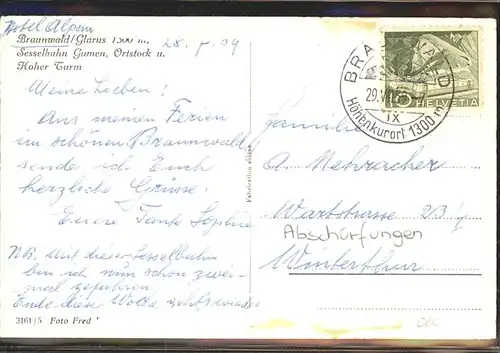 Hotel Alpina
Braunwald/Glarus 1300 m,
Sesselbahn Gumen, Ortstock u.
Hoher Turm
Meine Lieben!
Aus meinen Ferien
im schönen Braunwald
sende ich Euch
herzliche Grüsse.
Eure Tante Sophie
NB. Mit dieser Sesselbahn
bin ich nun schon zwei-
mal gefahren.
Ende dieser Woche geht's wieder
3161/5 Foto Fred
Fabrication suisse
BRAUNWALD
29.VII
IX
Höhenkurort 1300 m
HELVETIA
Familie
A. Mehracher
Wartstrasse 23
Abschürfungen
Winterthur